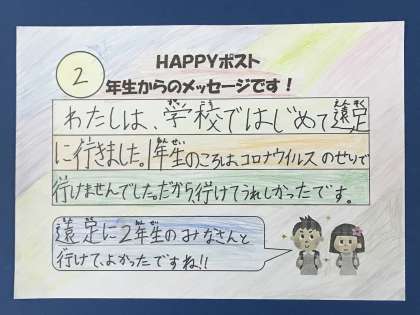 HAPPYポスト
2
年生からのメッセージです!
わたしは、学校ではじめて遠足
に行きました。1年生のころは、コロナウイルスのせいで
行けませんでした。だから、行けてうれしかったです。
遠足に2年生のみなさんと
行けて、よかったですね!!